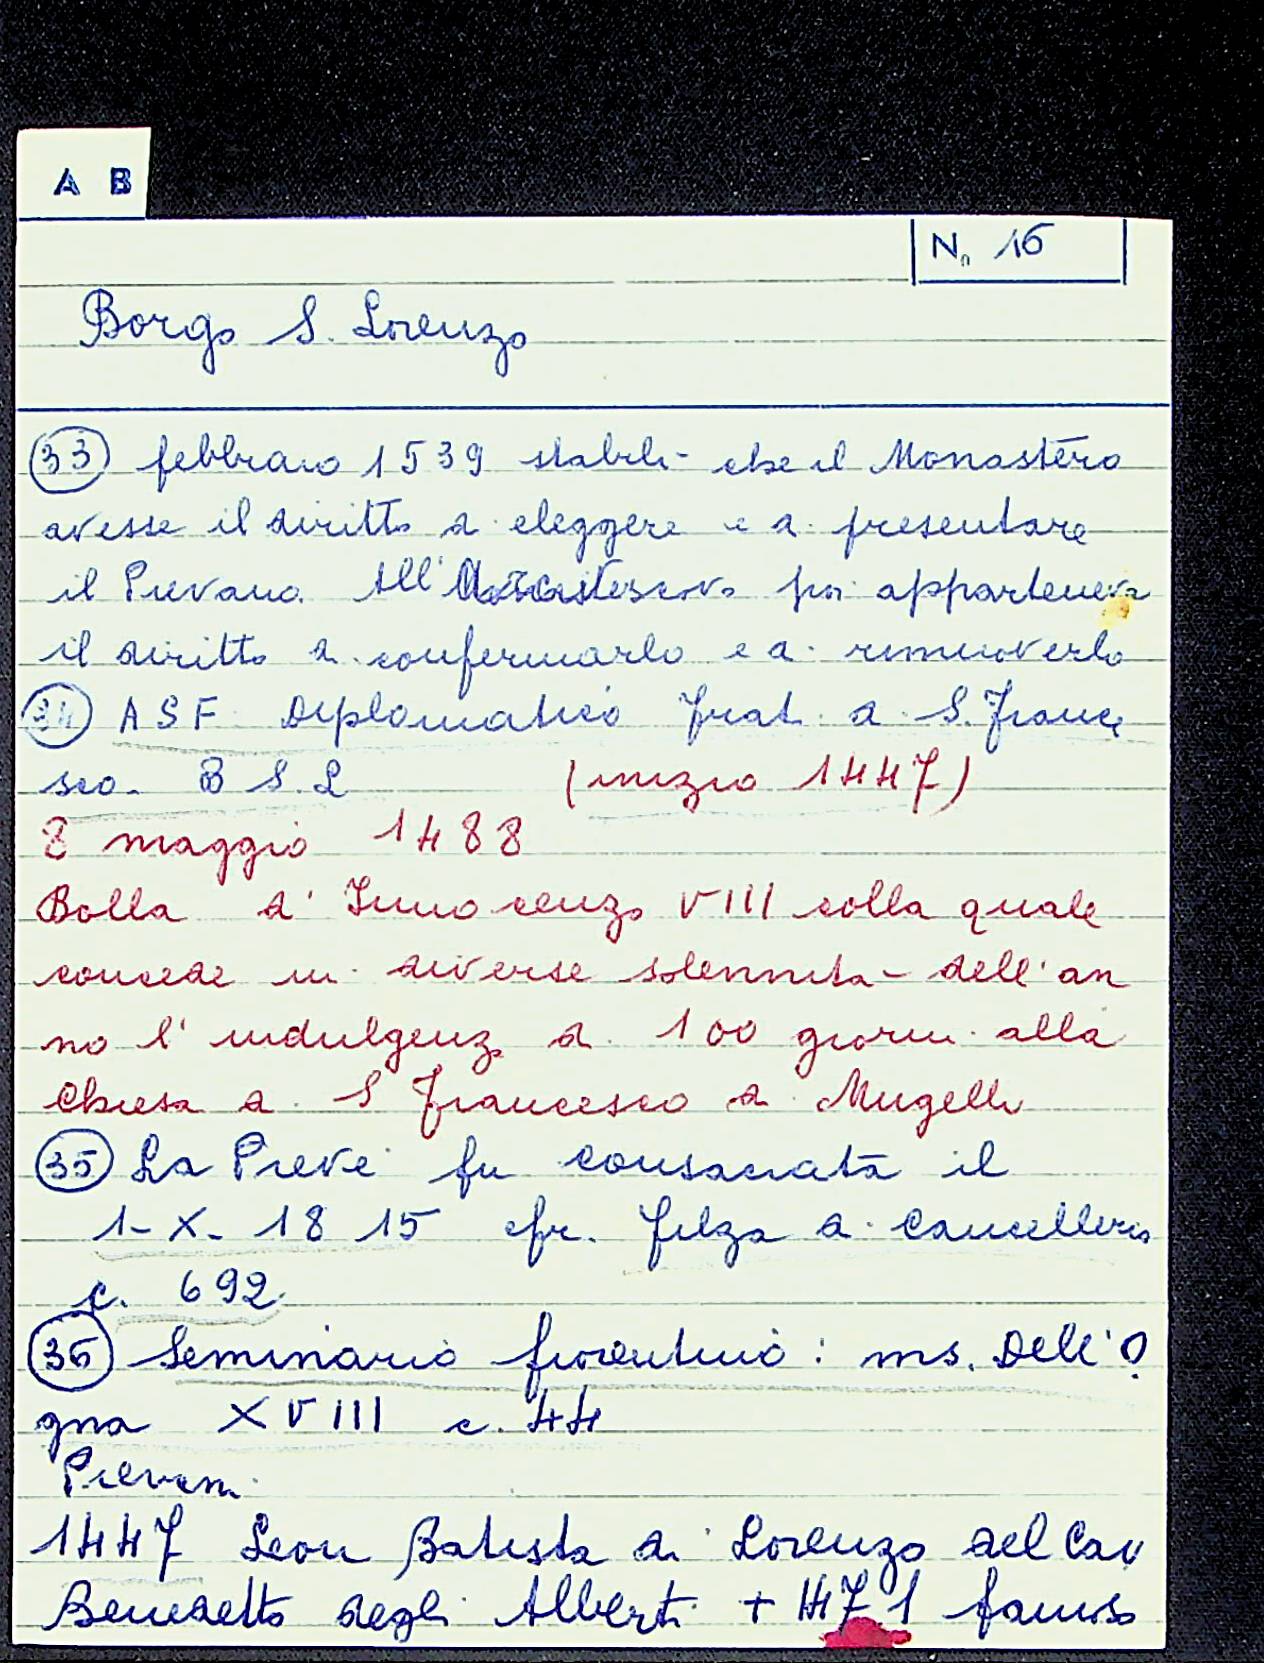 A B
N. 16
Borgo S. Lorenzo
33 febbraio 1539 stabili- che il Monastero
avesse il diritto di eleggere e di presentare
il Pievano. All'Arcivescovo poi apparteneva
il diritto di confermarlo e di rimuoverlo
34 ASF Diplomatico frati di S. France
sco. B S. L (inizio 1447)
8 maggio 1488
Bolla d' Innocenzo VIII colla quale
concede in diverse solennita- dell'an
no l' indulgenza di 100 giorni alla
Chiesa di S Francesco di Mugello
35 La Pieve fu consacrata il
1-X-1815 cfr. filza di Cancelleria
c. 692.
36 Seminario fiorentino: ms. Dell'O
gna XVIII c. 44
Pievani
1447 Leon Batista di Lorenzo del Cav
Benedetto degli Alberti + 1471 famoso